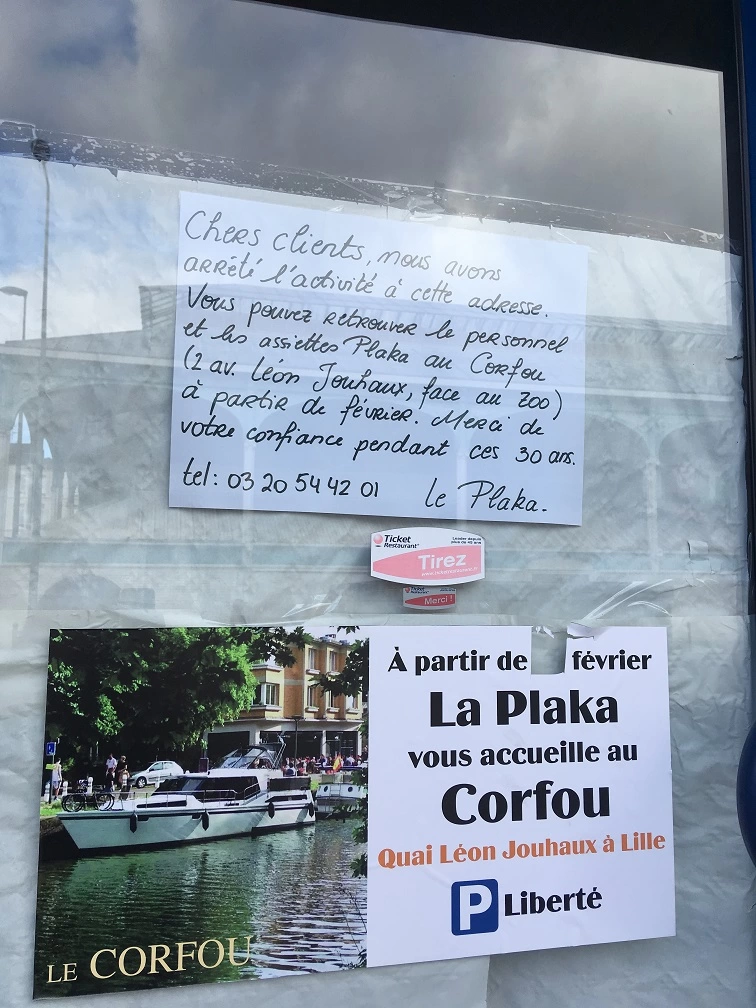 Chers clients, nous avons
arrêté l'activité à cette adresse.
Vous pouvez retrouver le personnel
et les assiettes Plaka au Corfou
(2 av. Léon Jouhaux, face au zoo)
à partir de février. Merci de
votre confiance pendant ces 30 ans.
tel: 03 20 54 42 01 le Plaka.
Ticket Restaurant®
Leader depuis plus de 45 ans
Tirez
Ticket Restaurant
Merci !
À partir de février
La Plaka
vous accueille au
Corfou
Quai Léon Jouhaux à Lille
P Liberté
LE CORFOU